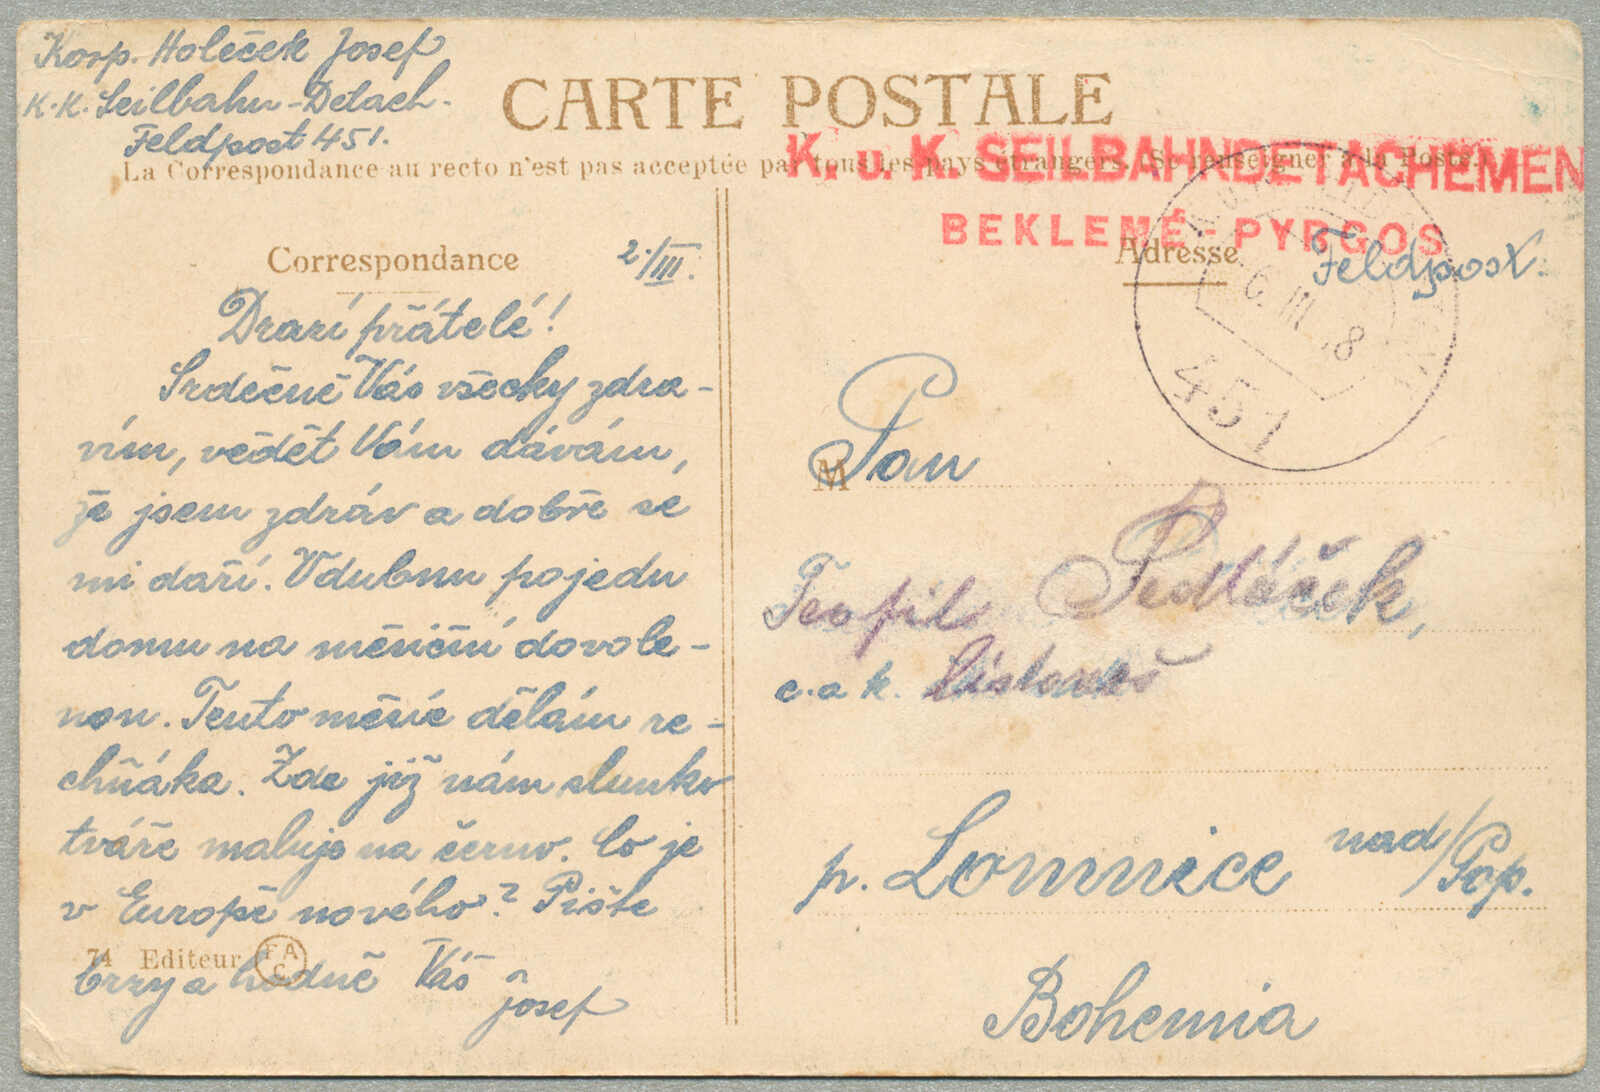 Korp. Holeček Josef
K.K. Seilbahn-Detach.
Feldpost 451.
CARTE POSTALE
La Correspondance au recto n'est pas acceptée par tous les pays étrangers. (Se renseigner à la Poste.)
K. u. K. SEILBAHNDETACHEMEN
BEKLEMÉ-PYRGOS
Correspondance
2./III.
Drazí přátelé!
Srdečně Vás všecky zdra-
vím, vědět Vám dávám,
že jsem zdráv a dobře se
mi daří. V dubnu pojedu
domu na měsíční dovole-
nou. Tento měsíc dělám re-
chňáka. Zde již nám slunko
tváře maluje na černo. Co je
v Europě nového? Pište
brzy a hodně Váš
Josef
74 Editeur F A C
Adresse
Feldpost.
6. III. 18
451
M Pan
Teofil Pedláček,
c. a k.
p. Lomnice nad/Pop.
Bohemia